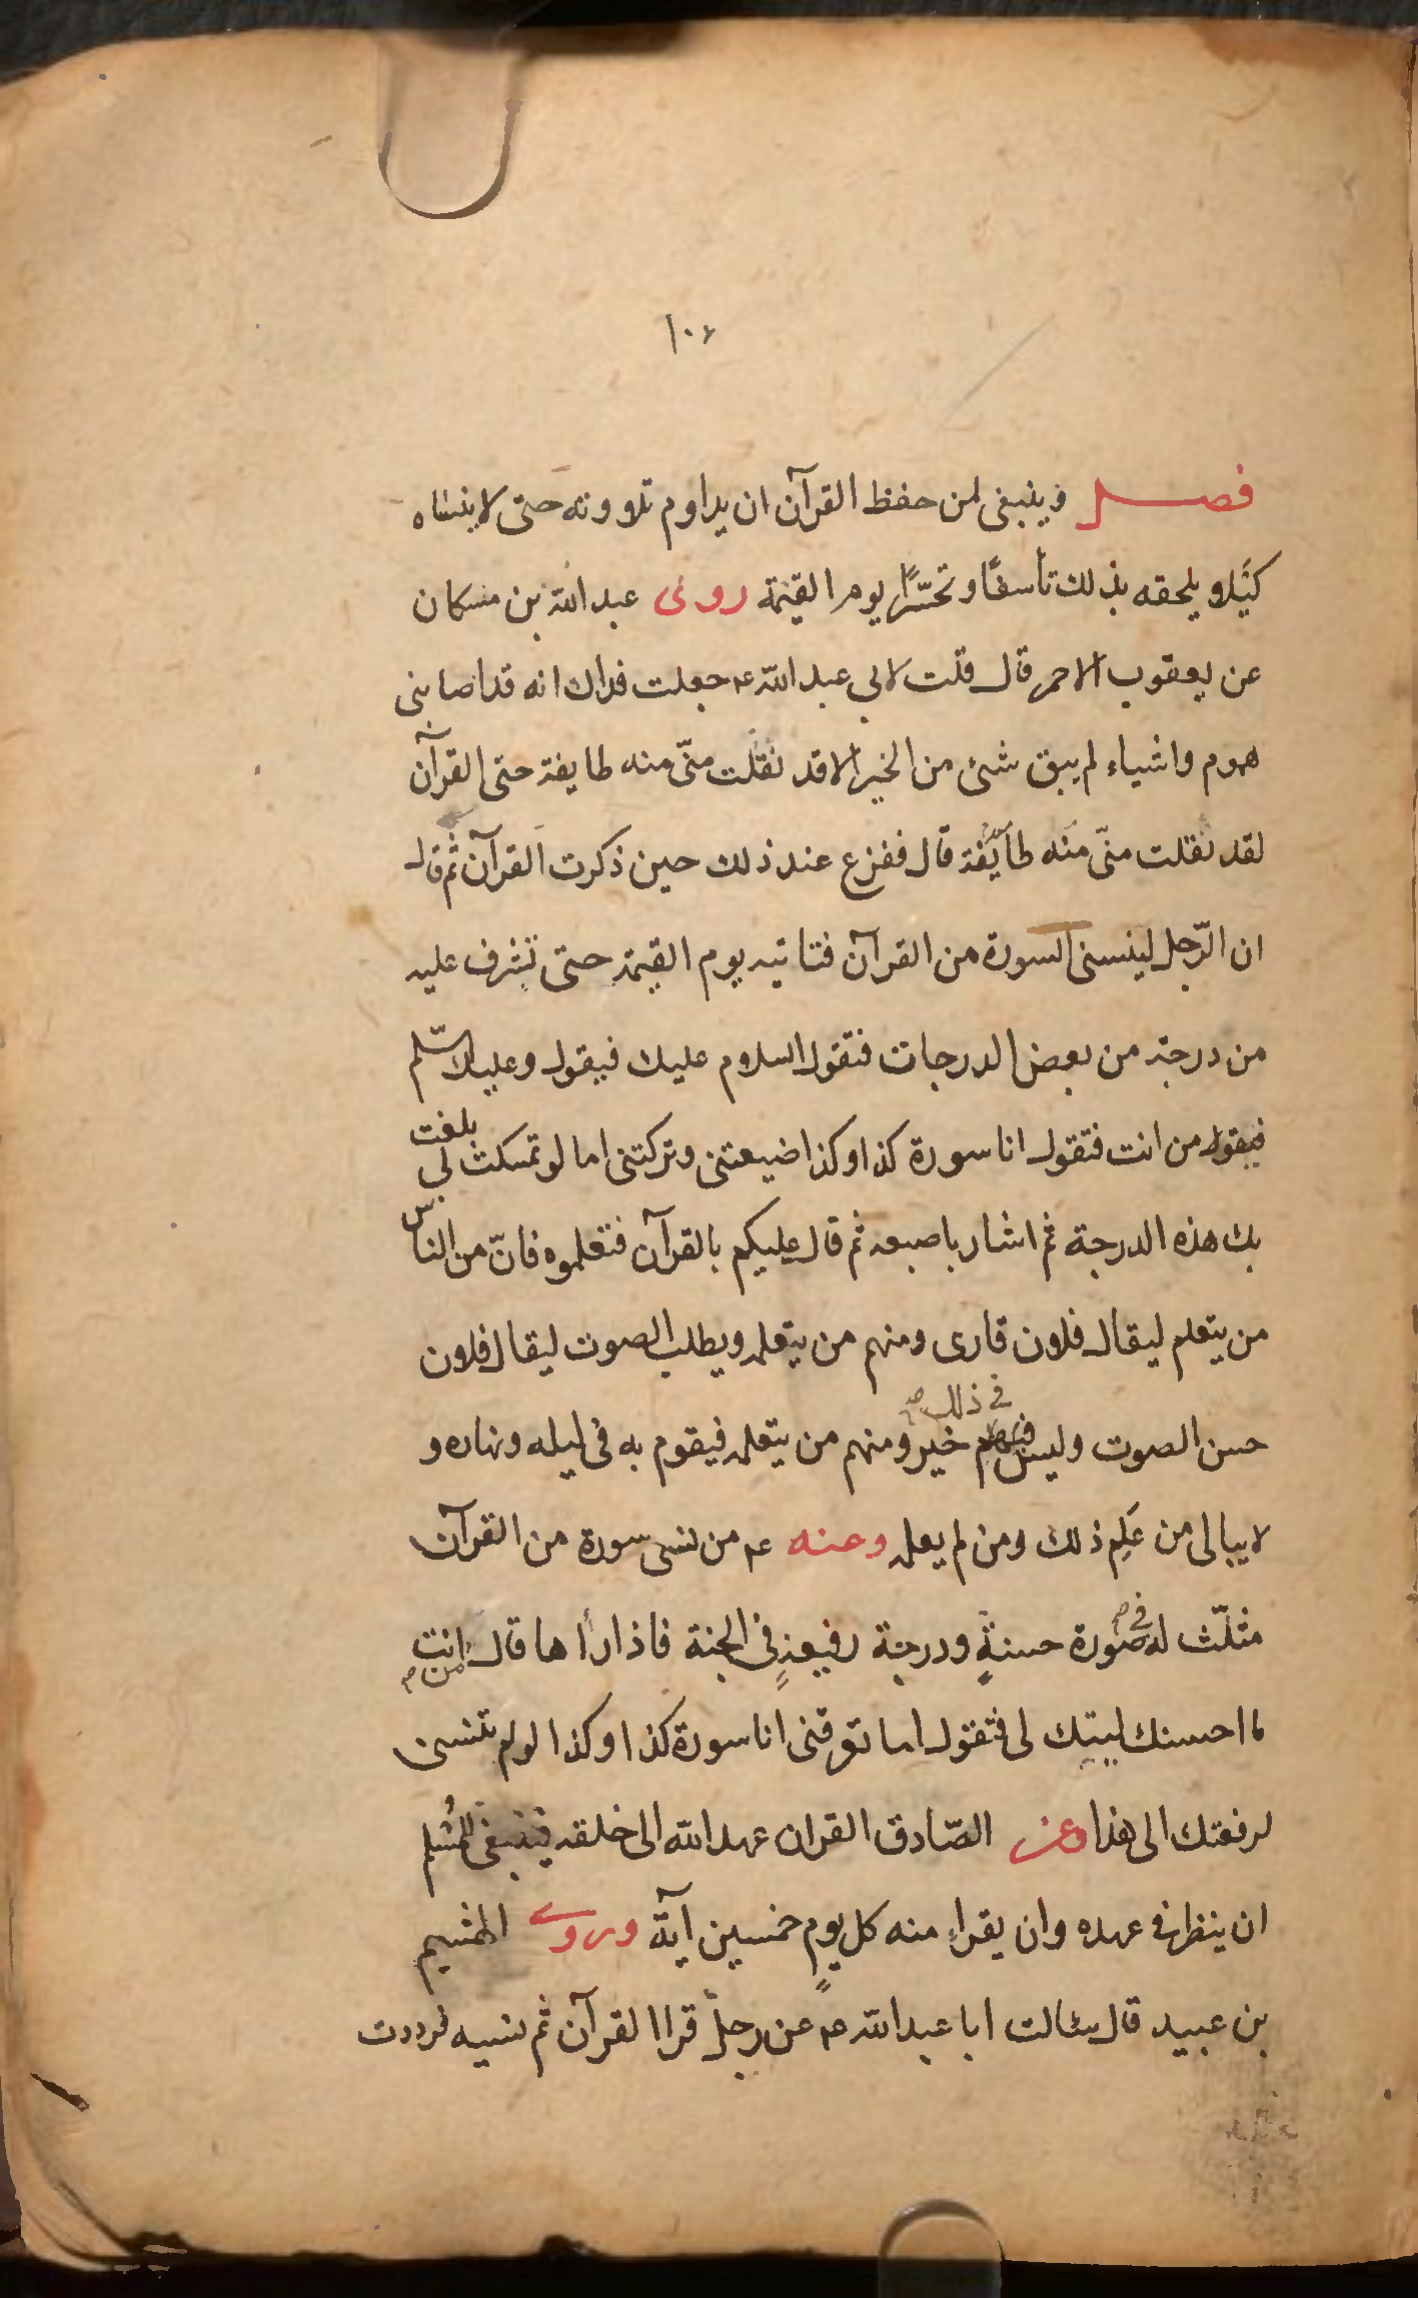 ١٠۶
فصل وينبغى لمن حفظ القرآن ان يداوم تلاوته حتى لا ينساه
كيلا ويلحقه بذلك تأسفًا وتحسّرًا يوم القيمة روى عبد الله بن مسكان
عن يعقوب الاحمر قال قلت لابي عبد الله ع جعلت فداك انه قد اصابنى
هموم واشياء لم يبق شئ من الخير الا قد تفلت منّى منه طايفة حتى القرآن
لقد تفلت منّى منه طايفة قال ففزع عند ذلك حين ذكرت القرآن ثم قال
ان الرّجل لينسى السورة من القرآن فتاتيه يوم القيمة حتى تشرف عليه
من درجة من بعض الدرجات فتقول السلام عليك فيقول وعليك السّلم
فيقول من انت فتقول انا سورة كذا وكذا ضيعتنى وتركتنى اما لو تمسكت بى بلغت
بك هذه الدرجة ثم اشار باصبعه ثم قال عليكم بالقرآن فتعلموه فانّ من الناس
من يتعلم ليقال فلان قارى ومنهم من يتعلمه ويطلب الصوت ليقال فلان
حسن الصوت وليس فى ذلك خير ومنهم من يتعلمه فيقوم به فى ليله ونهاره و
لا يبالى من عَلِم ذلك ومن لم يعلمه وعنه ع من نسى سورة من القرآن
مثلّث له فى صورة حسنةٍ ودرجة رفيعةٍ فى الجنة فاذا رأها قال من انت
ما احسنك ليتك لى فتقول اما تعرفنى انا سورة كذا وكذا لو لم تنسنى
لرفعتك الى هذا وعن الصّادق القران عهد الله الى خلقه فينبغى للمُسْلم
ان ينظر فى عهده وان يقراء منه كل يومٍ خمسين آية وروى الهشيم
بن عبيد قال سئالت ابا عبد الله ع عن رجل قرا القرآن ثم نسيه فرددت